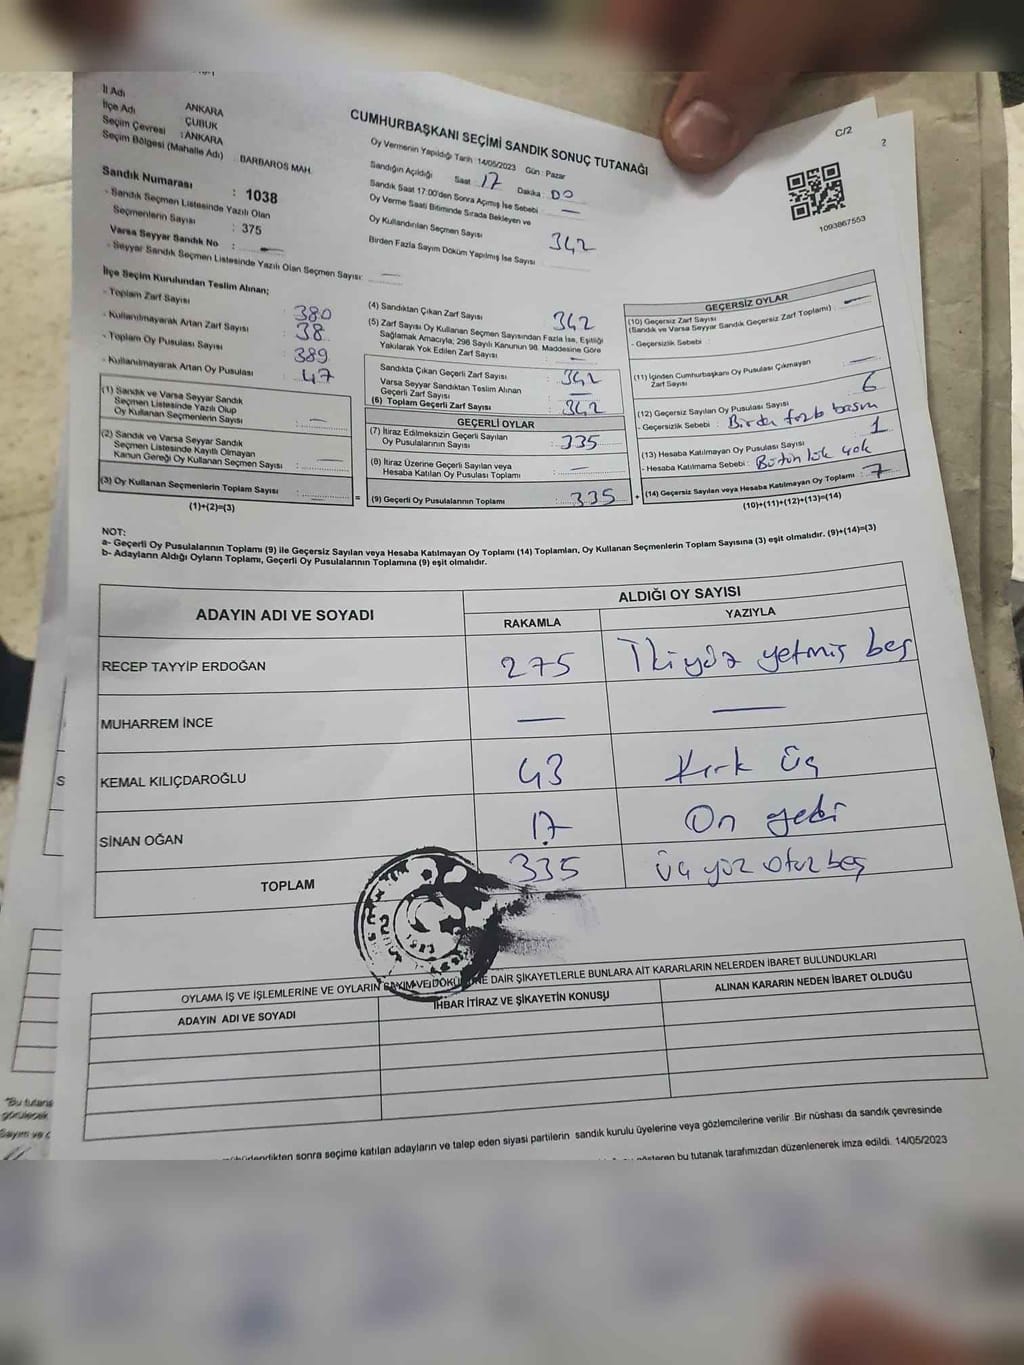 C/2
?
İl Adı
İlçe Adı ANKARA
Seçim Çevresi ÇUBUK
Seçim Bölgesi (Mahalle Adı) : ANKARA
BARBAROS MAH.
Sandık Numarası : 1038
- Sandık Seçmen Listesinde Yazılı Olan
Seçmenlerin Sayısı : 375
Varsa Seyyar Sandık No : —
- Seyyar Sandık Seçmen Listesinde Yazılı Olan Seçmen Sayısı: —
CUMHURBAŞKANI SEÇİMİ SANDIK SONUÇ TUTANAĞI
Oy Vermenin Yapıldığı Tarih : 14/05/2023 Gün : Pazar
Sandığın Açıldığı Saat : 17 Dakika : 00
Sandık Saat 17:00'den Sonra Açılmış İse Sebebi : —
Oy Verme Saati Bitiminde Sırada Bekleyen ve
Oy Kullandırılan Seçmen Sayısı
342
Birden Fazla Sayım Döküm Yapılmış İse Sayısı
1093867553
İlçe Seçim Kurulundan Teslim Alınan;
- Toplam Zarf Sayısı : 380
- Kullanılmayarak Artan Zarf Sayısı : 38
- Toplam Oy Pusulası Sayısı : 389
- Kullanılmayarak Artan Oy Pusulası : 47
(1) Sandık ve Varsa Seyyar Sandık
Seçmen Listesinde Yazılı Olup
Oy Kullanan Seçmenlerin Sayısı : —
(2) Sandık ve Varsa Seyyar Sandık
Seçmen Listesinde Kayıtlı Olmayan
Kanun Gereği Oy Kullanan Seçmen Sayısı : —
(3) Oy Kullanan Seçmenlerin Toplam Sayısı : —
(1)+(2)=(3)
(4) Sandıktan Çıkan Zarf Sayısı : 342
(5) Zarf Sayısı Oy Kullanan Seçmen Sayısından Fazla İse, Eşitliği
Sağlamak Amacıyla; 298 Sayılı Kanunun 98. Maddesine Göre
Yakılarak Yok Edilen Zarf Sayısı : —
Sandıkta Çıkan Geçerli Zarf Sayısı : 342
Varsa Seyyar Sandıktan Teslim Alınan
Geçerli Zarf Sayısı : —
(6) Toplam Geçerli Zarf Sayısı : 342
GEÇERLİ OYLAR
(7) İtiraz Edilmeksizin Geçerli Sayılan
Oy Pusulalarının Sayısı : 335
(8) İtiraz Üzerine Geçerli Sayılan veya
Hesaba Katılan Oy Pusulası Toplamı : —
(9) Geçerli Oy Pusulalarının Toplamı : 335
GEÇERSİZ OYLAR
(10) Geçersiz Zarf Sayısı
(Sandık ve Varsa Seyyar Sandık Geçersiz Zarf Toplamı) : —
- Geçersizlik Sebebi :
(11) İçinden Cumhurbaşkanı Oy Pusulası Çıkmayan
Zarf Sayısı : —
(12) Geçersiz Sayılan Oy Pusulası Sayısı : 6
- Geçersizlik Sebebi : Birden fazla basım
(13) Hesaba Katılmayan Oy Pusulası Sayısı : 1
- Hesaba Katılmama Sebebi : Bütünlük yok
(14) Geçersiz Sayılan veya Hesaba Katılmayan Oy Toplamı : 7
(10)+(11)+(12)+(13)=(14)
NOT:
a- Geçerli Oy Pusulalarının Toplamı (9) ile Geçersiz Sayılan veya Hesaba Katılmayan Oy Toplamı (14) Toplamları, Oy Kullanan Seçmenlerin Toplam Sayısına (3) eşit olmalıdır. (9)+(14)=(3)
b- Adayların Aldığı Oyların Toplamı, Geçerli Oy Pusulalarının Toplamına (9) eşit olmalıdır.
ADAYIN ADI VE SOYADI ALDIĞI OY SAYISI
RAKAMLA YAZIYLA
RECEP TAYYİP ERDOĞAN 275 İki yüz yetmiş beş
MUHARREM İNCE — —
KEMAL KILIÇDAROĞLU 43 Kırk üç
SİNAN OĞAN 17 On yedi
TOPLAM 335 üç yüz otuz beş
OYLAMA İŞ VE İŞLEMLERİNE VE OYLARIN SAYIM VE DÖKÜMÜNE DAİR ŞİKAYETLERLE BUNLARA AİT KARARLARIN NELERDEN İBARET BULUNDUKLARI
ADAYIN ADI VE SOYADI İHBAR İTİRAZ VE ŞİKAYETİN KONUSU ALINAN KARARIN NEDEN İBARET OLDUĞU
"Bu tutana
görülecek
Sayım ve
sonra seçime katılan adayların ve talep eden siyasi partilerin sandık kurulu üyelerine veya gözlemcilerine verilir. Bir nüshası da sandık çevresinde
gösteren bu tutanak tarafımızdan düzenlenerek imza edildi. 14/05/2023